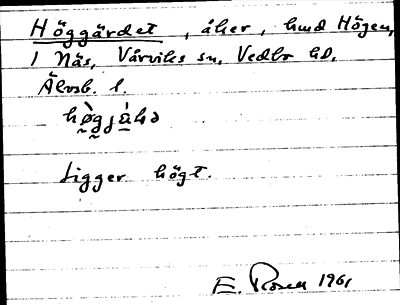 Höggärdet, åker, hmd Högen,
1 Näs, Vårviks sn, Vedbo hd,
Älvsb. l.
Ligger högt.
E. Rosell 1961